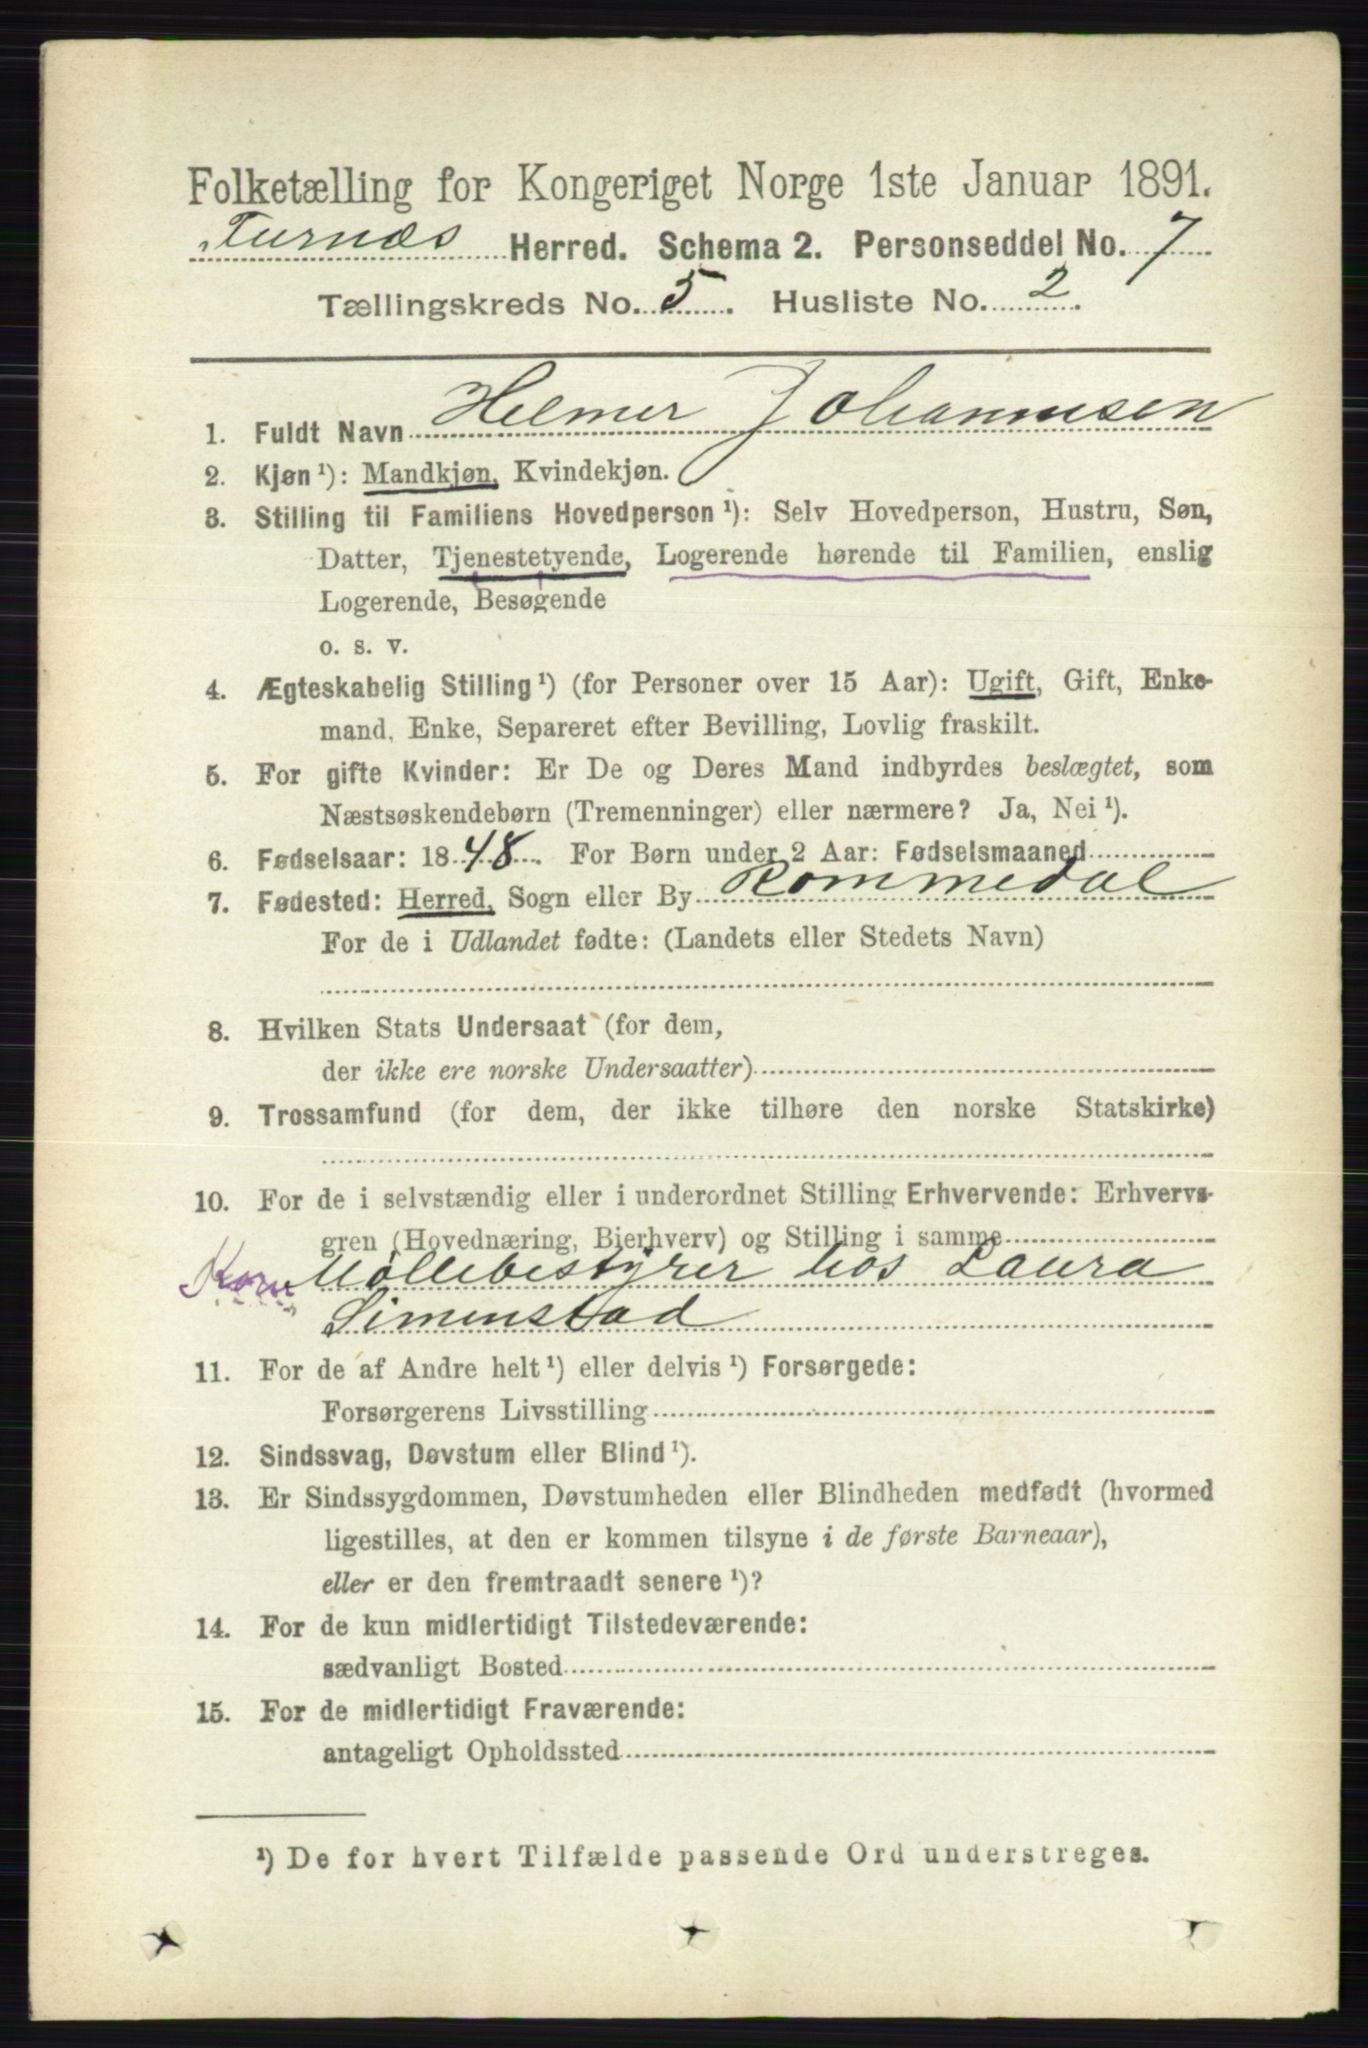 Folketælling for Kongeriget Norge 1ste Januar 1891.
Furnæs Herred. Schema 2. Personseddel No. 7
Tællingskreds No. 5. Husliste No. 2.
1. Fuldt Navn Helmer Johannesen
2. Kjøn ¹): Mandkjøn, Kvindekjøn.
3. Stilling til Familiens Hovedperson ¹): Selv Hovedperson, Hustru, Søn,
Datter, Tjenestetyende, Logerende hørende til Familien, enslig
Logerende, Besøgende
o. s. v.
4. Ægteskabelig Stilling ¹) (for Personer over 15 Aar): Ugift, Gift, Enke-
mand, Enke, Separeret efter Bevilling, Lovlig fraskilt.
5. For gifte Kvinder: Er De og Deres Mand indbyrdes beslægtet, som
Næstsøskendebørn (Tremenninger) eller nærmere? Ja, Nei ¹).
6. Fødselsaar: 1848. For Børn under 2 Aar: Fødselsmaaned
7. Fødested: Herred, Sogn eller By Rommedal
For de i Udlandet fødte: (Landets eller Stedets Navn)
8. Hvilken Stats Undersaat (for dem,
der ikke ere norske Undersaatter)
9. Trossamfund (for dem, der ikke tilhøre den norske Statskirke)
10. For de i selvstændig eller i underordnet Stilling Erhvervende: Erhvervs-
gren (Hovednæring, Bierhverv) og Stilling i samme
Korn Møllebestyrer hos Laura
Simenstad
11. For de af Andre helt ¹) eller delvis ¹) Forsørgede:
Forsørgerens Livsstilling
12. Sindssvag, Døvstum eller Blind ¹).
13. Er Sindssygdommen, Døvstumheden eller Blindheden medfødt (hvormed
ligestilles, at den er kommen tilsyne i de første Barneaar),
eller er den fremtraadt senere ¹)?
14. For de kun midlertidigt Tilstedeværende:
sædvanligt Bosted
15. For de midlertidigt Fraværende:
antageligt Opholdssted
¹) De for hvert Tilfælde passende Ord understreges.